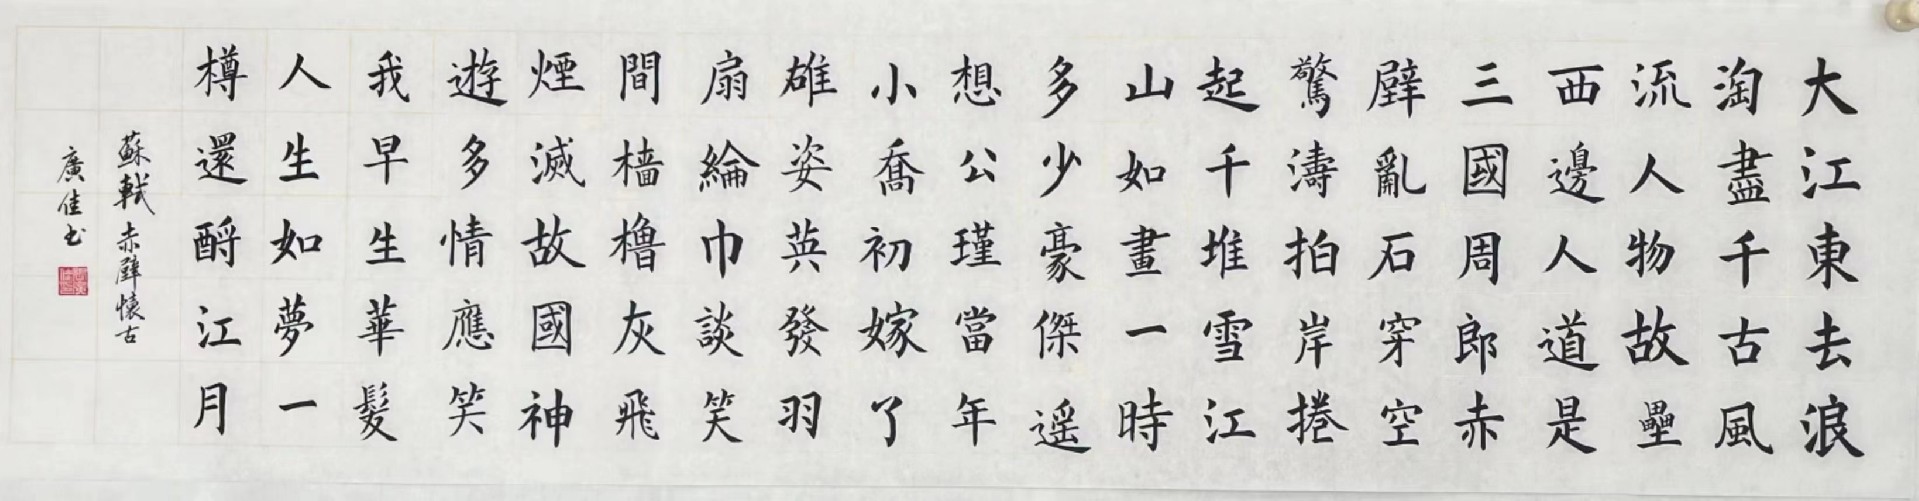 大江東去浪
淘盡千古風
流人物故壘
西邊人道是
三國周郎赤
壁亂石穿空
驚濤拍岸捲
起千堆雪江
山如畫一時
多少豪傑遥
想公瑾當年
小喬初嫁了
雄姿英發羽
扇綸巾談笑
間檣櫓灰飛
煙滅故國神
遊多情應笑
我早生華髮
人生如夢一
樽還酹江月
蘇軾赤壁懷古
廣佳书